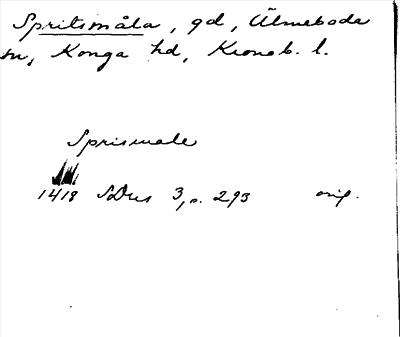 Spritsmåla, gd, Älmeboda
sn, Konga hd, Kronob. l.
Sprismale
1418 SDns 3, s. 293 orig.